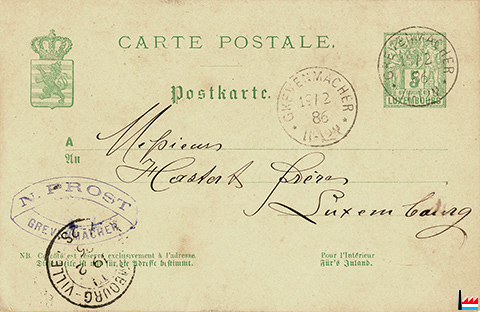 CARTE POSTALE.
Postkarte.
GREVENMACHER
19/2
86
11-12N
GREVENMACHER
19/2
86
5
LUXEMBOURG
A
An
Messieurs
Hastert frères
Luxembourg
N. PROST
GREVENMACHER
LUXEMBOURG-VILLE
NB. Ce côté est réservé exclusivement à l'adresse.
Die Seite ist nur für die Adresse bestimmt.
Pour l'Intérieur
Für's Inland.